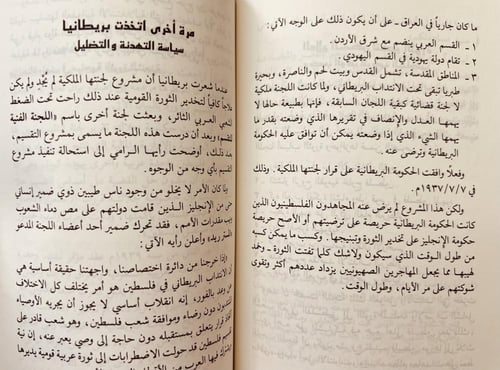 ما كان جارياً في العراق ـ على أن يكون ذلك على الوجه الآتي :
١ ـ القسم العربي ينضم مع شرق الأردن .
٢ ـ تقام دولة يهودية في القسم اليهودي .
٣ ـ المناطق المقدسة، تشمل القدس وبيت لحم والناصرة، وبحيرة
طبريا تبقى تحت الانتداب البريطاني، ولما كانت اللجنة ملكية
وليست لجنة قضائية كبقية اللجان السابقة، فإنها بطبيعة حالها لا
يهمها العدل والإنصاف في تقريرها الذي وضعته بقدر ما
يهمها الشيء الذي إذا وضعته يمكن أن توافق عليه الحكومة
البريطانية وترضى عنه .
وفعلاً وافقت الحكومة البريطانية على قرار لجنتها الملكية . وذلك
في ١٩٣٧/٧/٧م .
ولكن هذا المشروع لم يرض عنه المجاهدون الفلسطينيون الذين
كانت الحكومة البريطانية حريصة على ترضيتهم أو الأصح حريصة
حكومة الإنجليز على تخدير الثورة وتبنيجها . وكسب ما يمكن كسبه
من طول الوقت الذي سيكون ولاشك كلما تفتت الثورة ـ وخمد
لهيبها ما يجعل المهاجرين الصهيونيين يزداد عددهم أكثر وتقوى
شوكتهم على مر الأيام، وطول الوقت .
مرة أخرى اتخذت بريطانيا
سياسة التهدئة والتضليل
عندما شعرت بريطانيا أن مشروع لجنتها الملكية لم يُجْدِ ولم يكن
علاجاً كافياً لتخدير الثورة القومية عند ذلك راحت تحت الضغط
الشعبي العربي الثائر، وبعثت لجنة أخرى باسم «اللجنة الفنية
للتقسيم» وبعد أن درست هذه اللجنة ما يسمى بمشروع التقسيم،
بعد ذلك، أوضحت رأيها الرامي إلى استحالة تنفيذ مشروع
التقسيم بأي وجه من الوجوه .
ولما كان الأمر لا يخلو من وجود ناس طيبين ذوي ضمير إنساني
حتى من الإنجليز الذين قامت دولتهم على مص دماء الشعوب
ونهب مقدرات الأمم، فقد تحرك ضمير أحد أعضاء اللجنة المدعو
وأعلن رأيه الآتي :
«إذا خرجنا من دائرة اختصاصنا، واجهتنا حقيقة أساسية هي
أن الانتداب البريطاني في فلسطين هو أمر يختلف كل الاختلاف
عن وعد بالفور» إنه انقلاب أساسي لا يجوز أن يجريه الأوصياء
دون رضاء وموافقة شعب فلسطين، وهو شعب قادر على
اتخاذ قرار يتعلق بمستقبله دون حاجة إلى وصي يعبر عنه، إن نية
فلسطين قد حولت الاضطرابات إلى ثورة عربية قومية يديرها